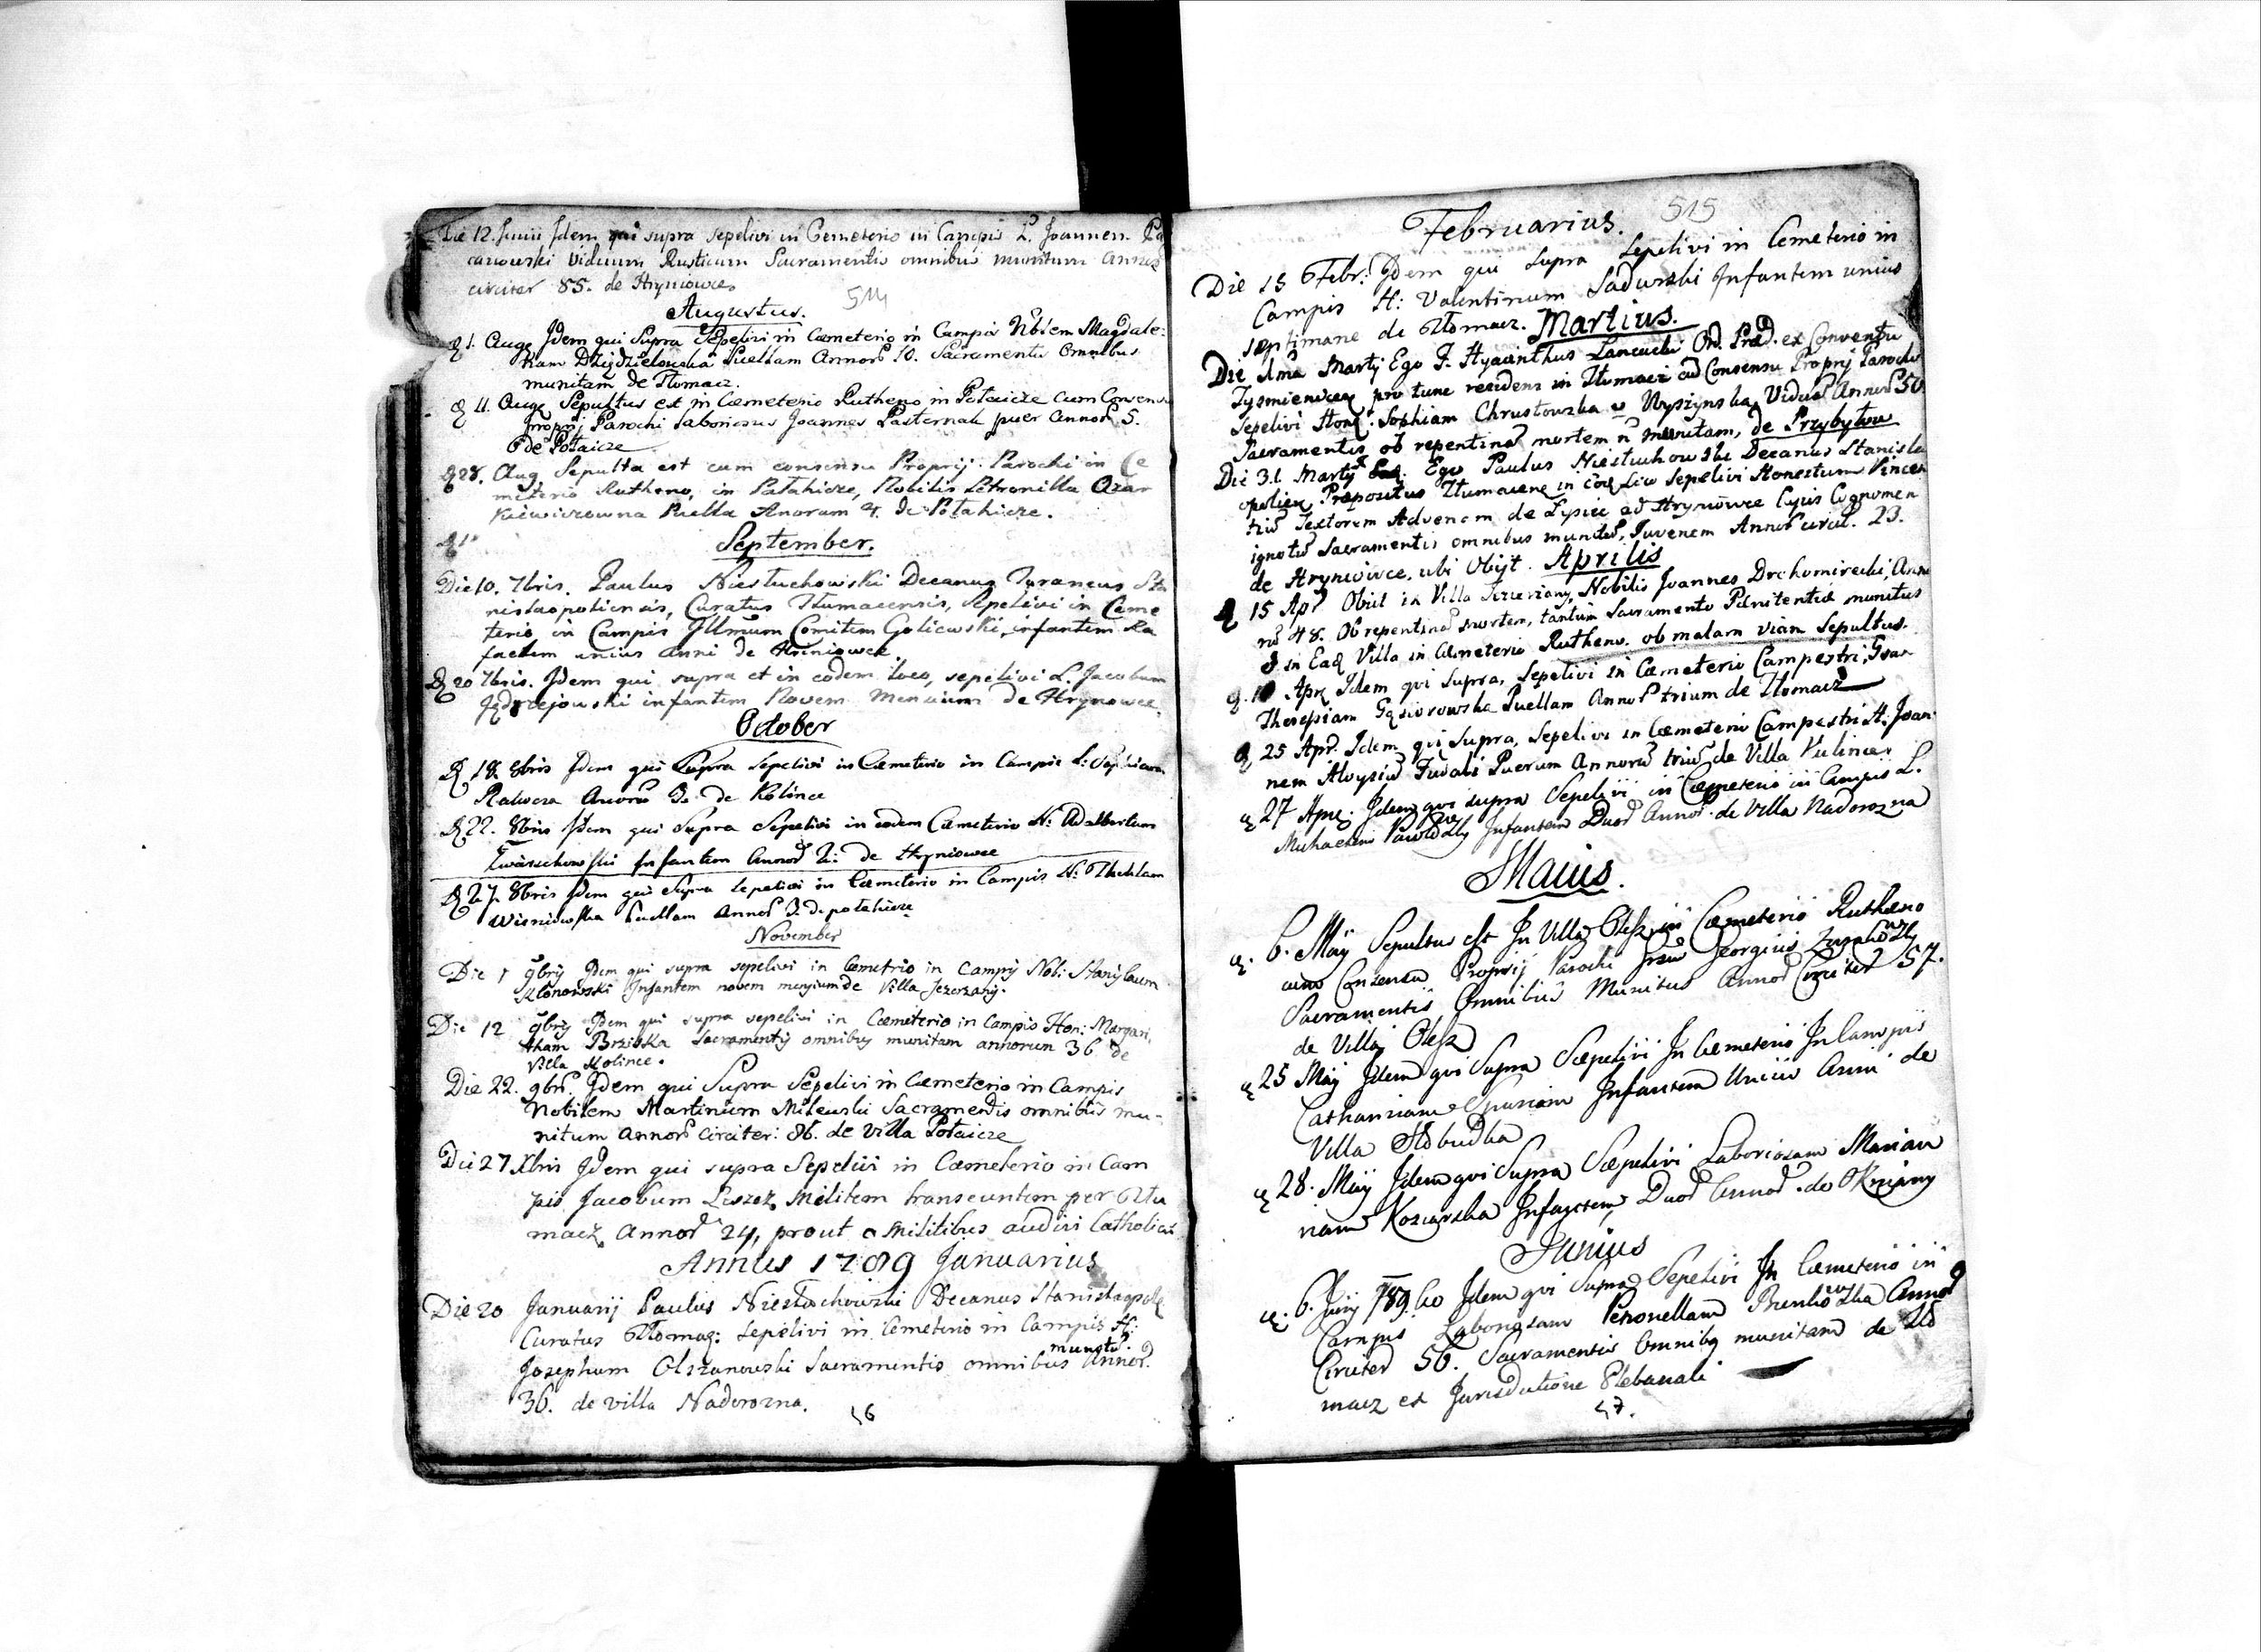 Die 12. Junii Idem qui supra sepelivi in Cemeterio in Campis L. Joannem
viduum Rusticum Sacramentis omnibus munitum annor
circiter 85. de Hryniowce
514
Augustus.
1. Aug Idem qui Supra Sepelivi in Cæmeterio in Campis Nblem Magdale:
nam Puellam Annor 10. Sacramentis Omnibus
munitam de Tłomacz.
4. Aug Sepultus est in Cæmeterio Rutheno in Potaicze cum Consensu
Proprij Parochi Laboriosus Joannes Pasternak puer annor 5.
de Potaicze
28. Aug. Sepulta est cum consensu Proprij Parochi in Ce
meterio Rutheno, in Patahicze, Nobilis Petronilla Ozar
kiewiczowna Puella Anorum 4. de Potahicze.
September.
Die 10. 7bris. Paulus Niestuchowski Decanus Sta
nislaopoliensis, Curatus Tłumacensis, Sepelivi in Came
terio in Campis Illmum Comitem Goliewski, infantem Ra
faelem unius anni de Hriniowce.
20 7bris. Idem qui supra et in eodem loco, sepelivi L. Jacobum
Jędrzejowski infantem Novem Mensium de Hrynowce.
October
18. 8bris Idem qui Supra Sepelivi in Cæmeterio in Campis L: Sophiam
Anoru 3. de Kolince
22. 8bris Idem qui Supra Sepelivi in eodem Cæmeterio H: Adalbertum
Infantem Annor 2: de Hryniowce
27. 8bris Idem qui Supra sepelivi in Cæmeterio in Campis H: Theklam
Wisniowska Puellam Annor 3. de potahicze
November
Die 1 9bris Idem qui supra sepelivi in Cæmetrio in Campis Nob: Stanislaum
Klonowski Infantem novem mensium de Villa Jezerzany.
Die 12 9bris Idem qui supra sepelivi in Cæmeterio in Campis Hon: Margari,
tham Brziska Sacramentis omnibus munitam annorum 36 de
Villa Kolince.
Die 22. 9br. Idem qui Supra Sepelivi in Cæmeterio in Campis
Nobilem Martinum Milewski Sacramentis omnibus mu-
nitum annor circiter: 86. de Villa Potaicze
Die 27 Xbris Idem qui supra Sepelivi in Cæmeterio in Cam
pis Jacobum Leszez Militem transeuntem per Tłu
macz Annor 24, prout a Militibus audivi Catholicus
Annus 1789 Januarius
Die 20 Januarij Paulus Niestuchowski Decanus Stanislaopol
Curatus Tłomac: Sepelivi in Cemeterio in Campis H:
munitu
Josephum Olszanowski Sacramentis omnibus Annor.
36. de villa Nadorozna.
46
515
Februarius.
Die 15 Febr: Idem qui supra Sepelivi in Cemeterio in
Campis H: Valentinum Sadurski Infantem unius
septimane de Tłomacz.
Martius.
Die 1ma Martij Ego F. Hyacinthus Ord. Præd. ex Conventu
Tysmienicen pro tunc residens in Tłumacz ad Consensu Proprij Parochi
Sepelivi Hon: Sophiam Chrustowska Viduã Annor 50
Sacramentis ob repentinã mortem ñ munitam, de Przybyłow
Die 31. Martij Ego Paulus Niestuchowski Decanus Stanisla
opolien Præpositus Tłumacen in Sepelivi Honestum Vincen
tiũ Textorem Advenam de Lipice ad Hryniowce Cujus Cognomen
ignotũ Sacramentis omnibus munitũ, Juvenem Annor circit. 23.
de Hryniowce, ubi Obijt.
Aprilis
15 Apr Obiit in Villa Jezierzany, Nobilis Joannes Drohomirecki, Anno
rũ 48. Ob repentinã mortem, tantum Sacramento Pænitentiæ munitus
in Ead Villa in Cæmeterio Rutheno. ob malam viam Sepultus.
Apr Idem qui Supra, Sepelivi in Cæmeterio Campestri,
Theresiam Gąsiorowska Puellam Annor trium de Tłomacz
25 Apr. Idem qui Supra, Sepelivi in Cæmeterio Campestri H: Joan
nem Aloysiũ Puerum Annorũ triũ de Villa Kulince.
27 Apr. Idem qui supra Sepelivi in Cæmeterio in Campis L.
Michaelem Infantem Duor Annor. de Villa Nadorozna
Maius.
6. Maij Sepultus est In Villa Olesz in Cæmeterio Rutheno
cum Consensu Proprij Parochi Georgius
Sacramentis Omnibus Munitus Annor Circiter 57.
de Villa Olesz
25 Maij Idem qui Supra Sæpelivi In Cæmeterio In Campis
Infantem Unius Anni de
Villa Słobudka
28. Maij Idem qui Supra Sæpelivi Laboriosam Marian
nam Koziarska Infantem Duor Annor. de Okniany
Junius
6. Junij 789. Idem qui Supra Sepelivi In Cæmeterio in
Campis Laboriosam Petronellam Annor
Circiter 56. Sacramentis Omnibus munitam de Tłó
macz ex Jurisdictione Plebanali
47.